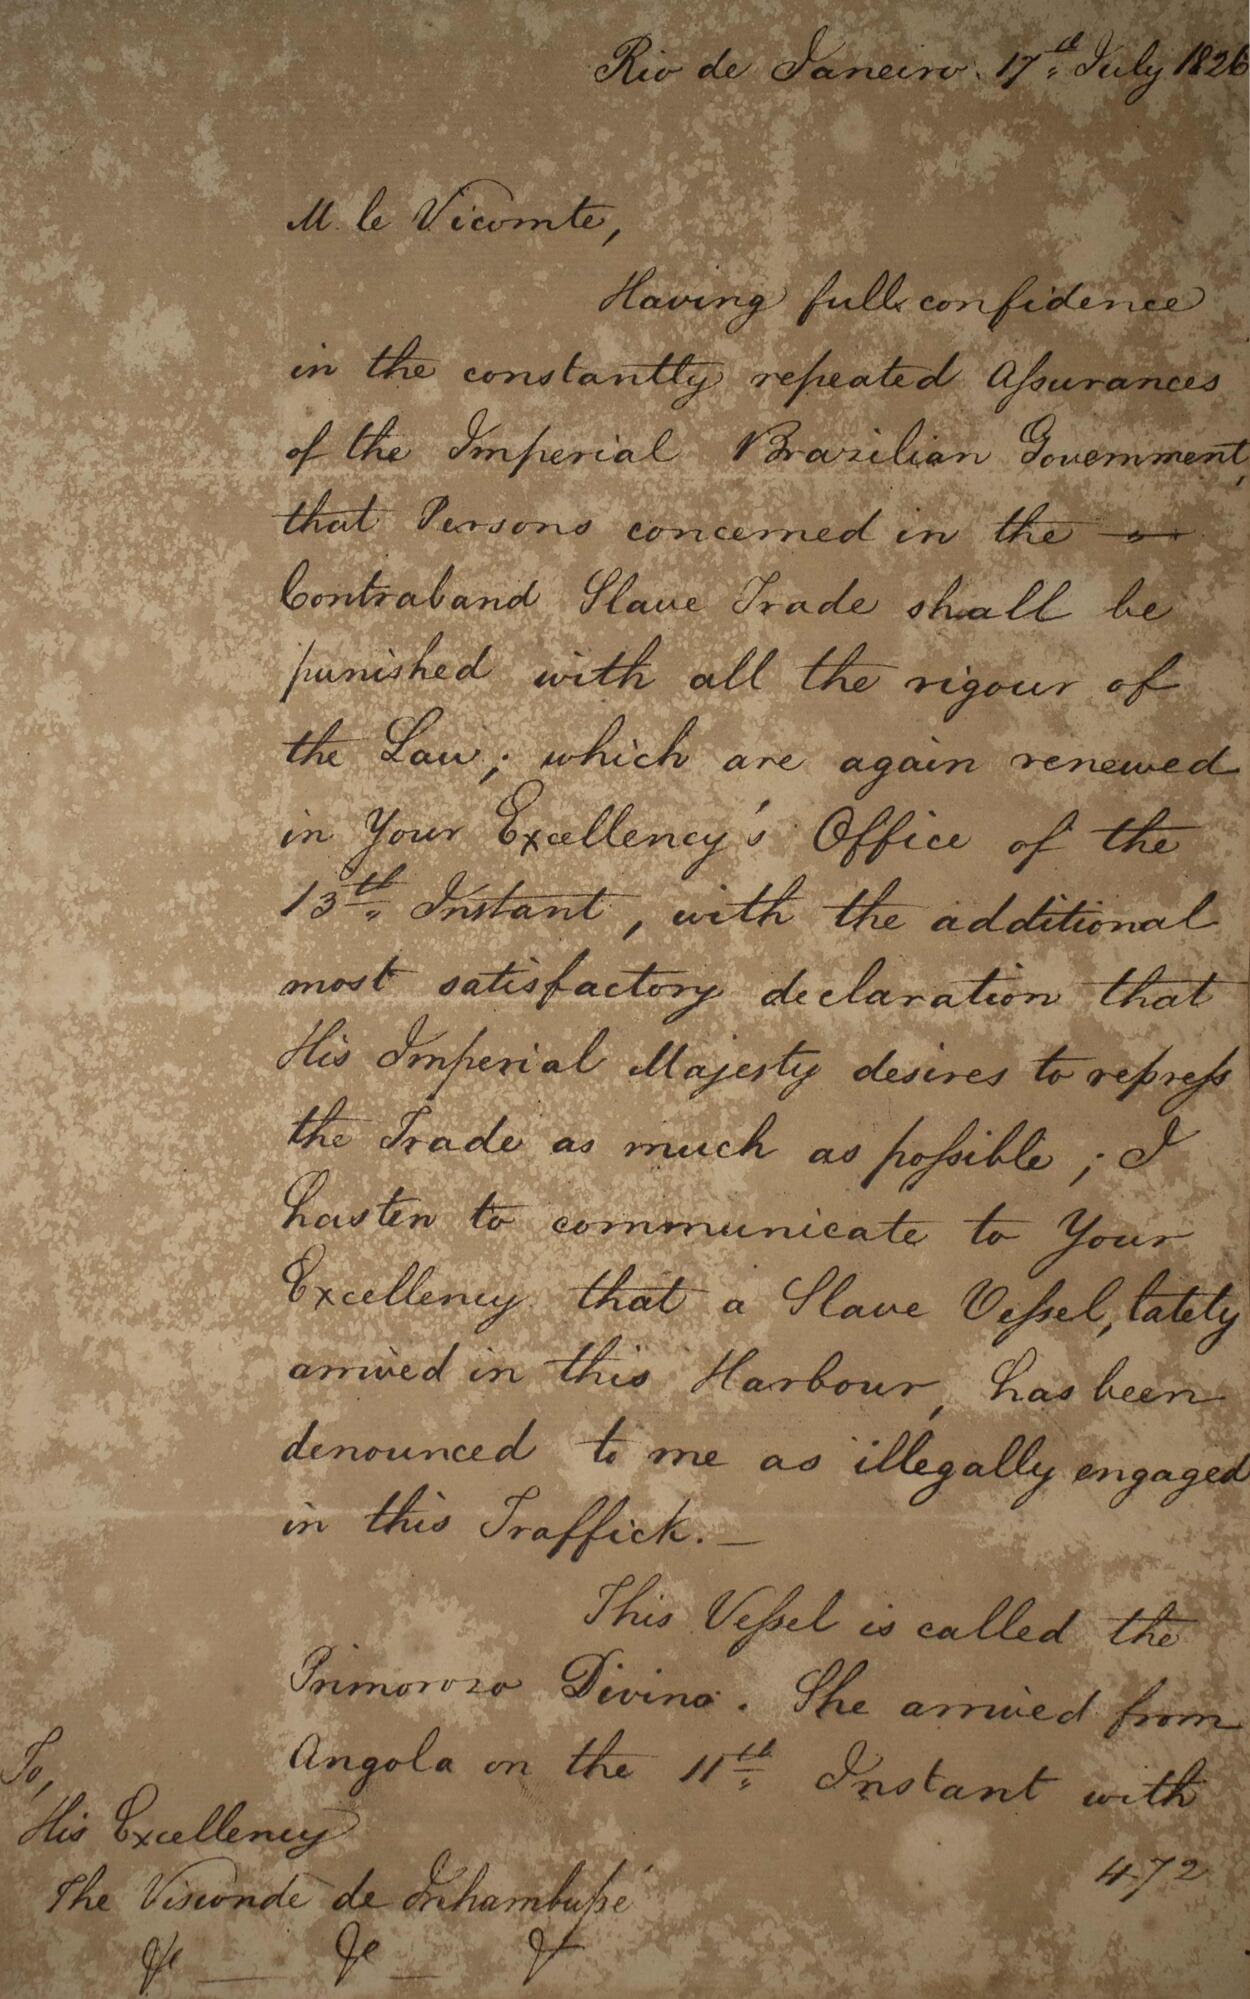 Rio de Janeiro. 17th July 1826
M. le Vicomte,
Having full confidence
in the constantly repeated Assurances
of the Imperial Brazilian Government,
that Persons concerned in the
Contraband Slave Trade shall be
punished with all the rigour of
the Law; which are again renewed
in Your Excellency's Office of the
13th Instant, with the additional
most satisfactory declaration that
His Imperial Majesty desires to repress
the Trade as much as possible; I
hasten to communicate to Your
Excellency that a Slave Vessel, lately
arrived in this Harbour, has been
denounced to me as illegally engaged
in this Traffick. —
This Vessel is called the
Primorozo Divino. She arrived from
Angola on the 11th Instant with
472
To,
His Excellency
The Visconde de Inhambupé
&c — &c — &c